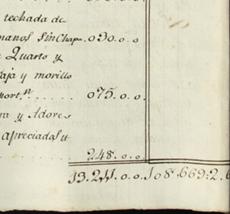 techada de
manos Sin Chapa . 030 . 0 . 0
Quarto y
aja y morillo
mort.n . . . . 075 . 0 . 0 .
a y Adores
apreciadas tt
. . . . . 248 . 0 . 0
13.241 . 0 . 0 108.669 : 2 . 6